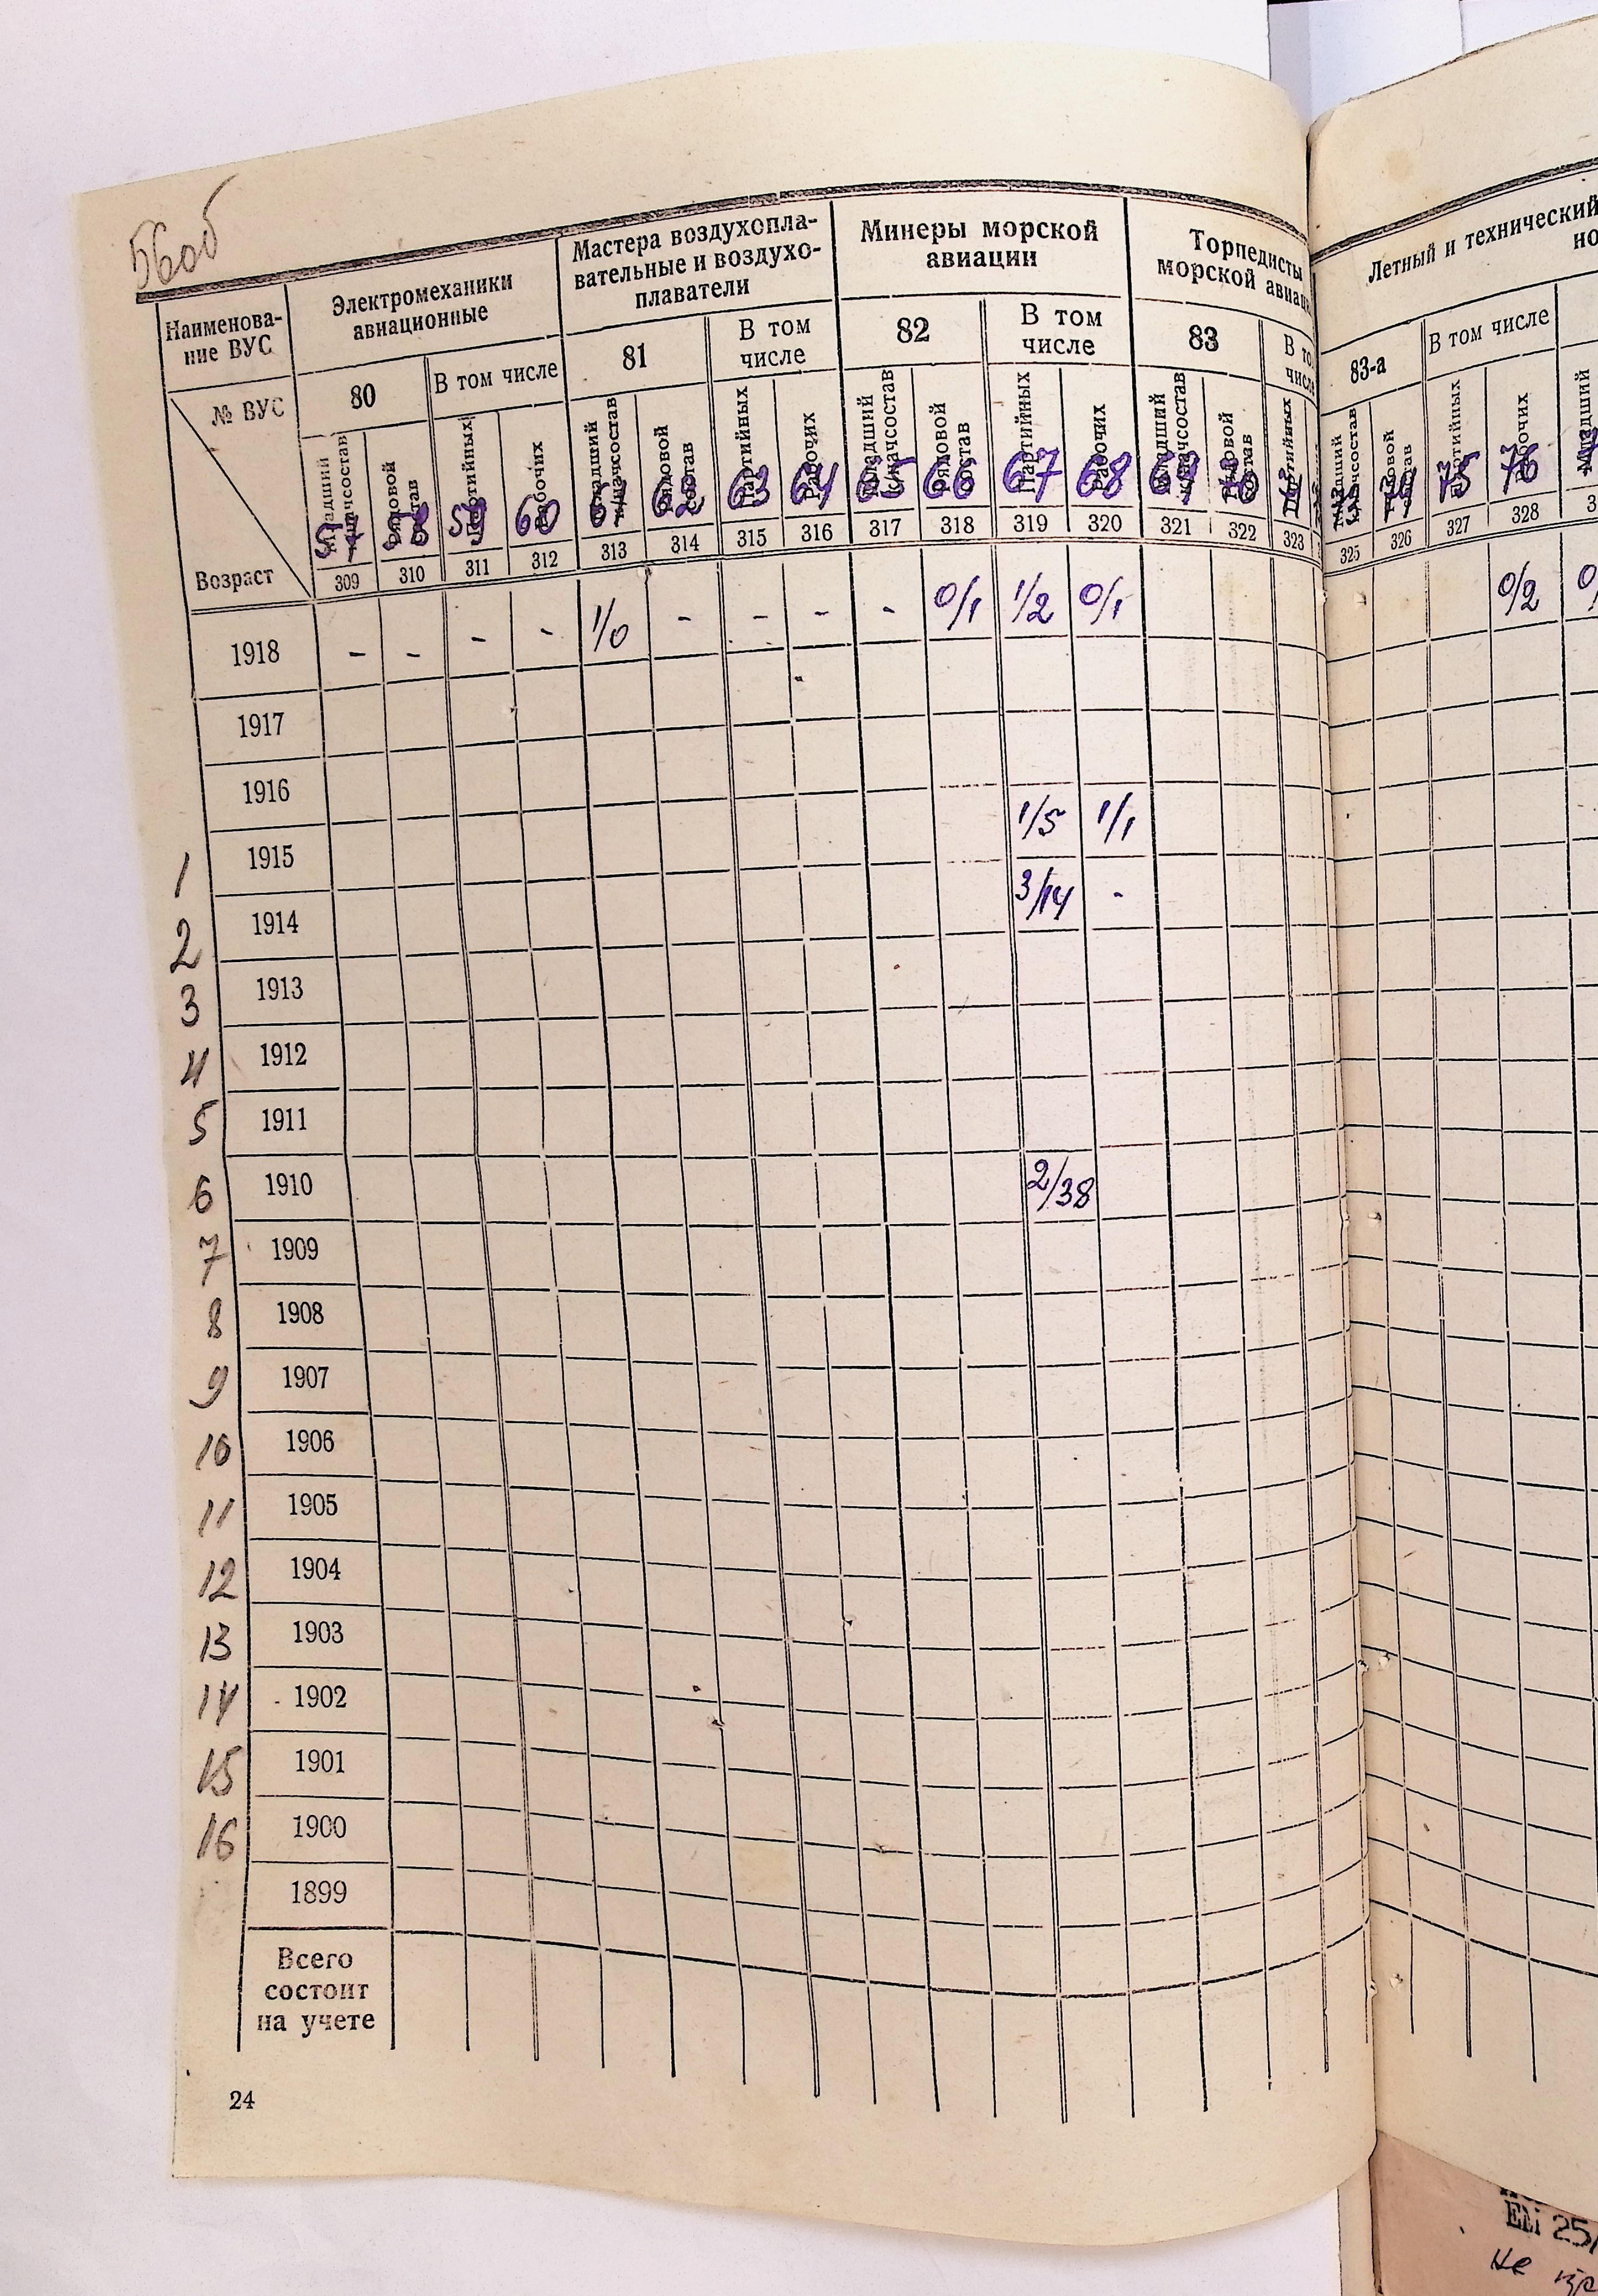 56об
Наименова-
ние ВУС
Электромеханики
авиационные
Мастера воздухопла-
вательные и воздухо-
плаватели
Минеры морской
авиации
Торпедисты
морской авиац
Летный и технический
но
80
В том числе
81
В том
числе
82
В том
числе
83
В то
числе
83-а
В том числе
№ ВУС
Возраст
Младший
начсостав
Рядовой
состав
Партийных
Рабочих
Младший
начсостав
Рядовой
состав
Партийных
Рабочих
Младший
начсостав
Рядовой
состав
Партийных
Рабочих
Младший
начсостав
Рядовой
состав
Партийных
Младший
начсостав
Рядовой
состав
Партийных
Рабочих
Младший
57 58 59 60 61 62 63 64 65 66 67 68 69 70 74 75 76
309 310 311 312 313 314 315 316 317 318 319 320 321 322 323 325 326 327 328
1918 - - - - 1/0 - - - - 0/1 1/2 0/1 0/2 0/
1917
1916
1/5 1/1
1 1915
3/14 -
2 1914
3 1913
4 1912
5 1911
6 1910 2/38
7 1909
8 1908
9 1907
10 1906
11 1905
12 1904
13 1903
14 1902
15 1901
16 1900
1899
Всего
состоит
на учете
24
ЕМ 25/
не